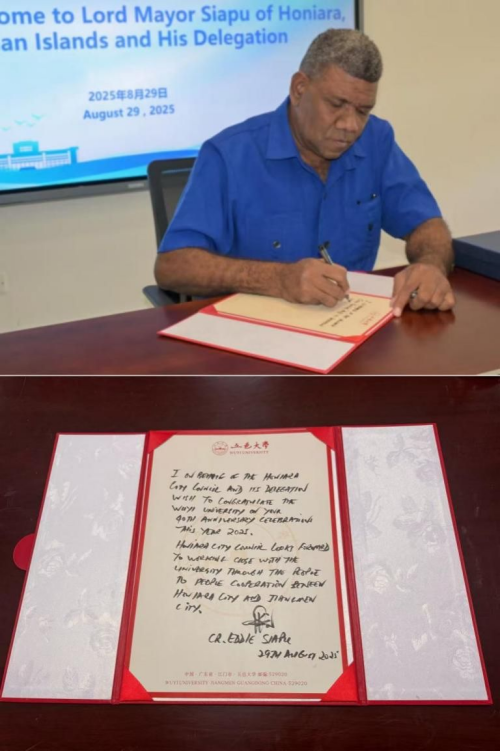 ome to Lord Mayor Siapu of Honiara,
an Islands and His Delegation
2025年8月29日
August 29 , 2025
五邑大學
WUYI UNIVERSITY
I ON BEHALF OF THE HONIARA
CITY COUNCIL AND ITS DELEGATION
WISH TO CONGRATULATE THE
WUYI UNIVERSITY ON YOUR
40TH ANNIVERSARY CELEBRATIONS
THIS YEAR 2025.
HONIARA CITY COUNCIL LOOKS FORWARD
TO WORKING CASE WITH THE
UNIVERSITY THROUGH THE PEOPLE
TO PEOPLE COOPERATION BETWEEN
HONIARA CITY AND JIANGMEN
CITY.
CR. EDDIE SIAPU
29TH AUGUST 2025
中国·广东省·江门市·五邑大学 邮编 529020
WUYI UNIVERSITY JIANGMEN GUANGDONG CHINA 529020